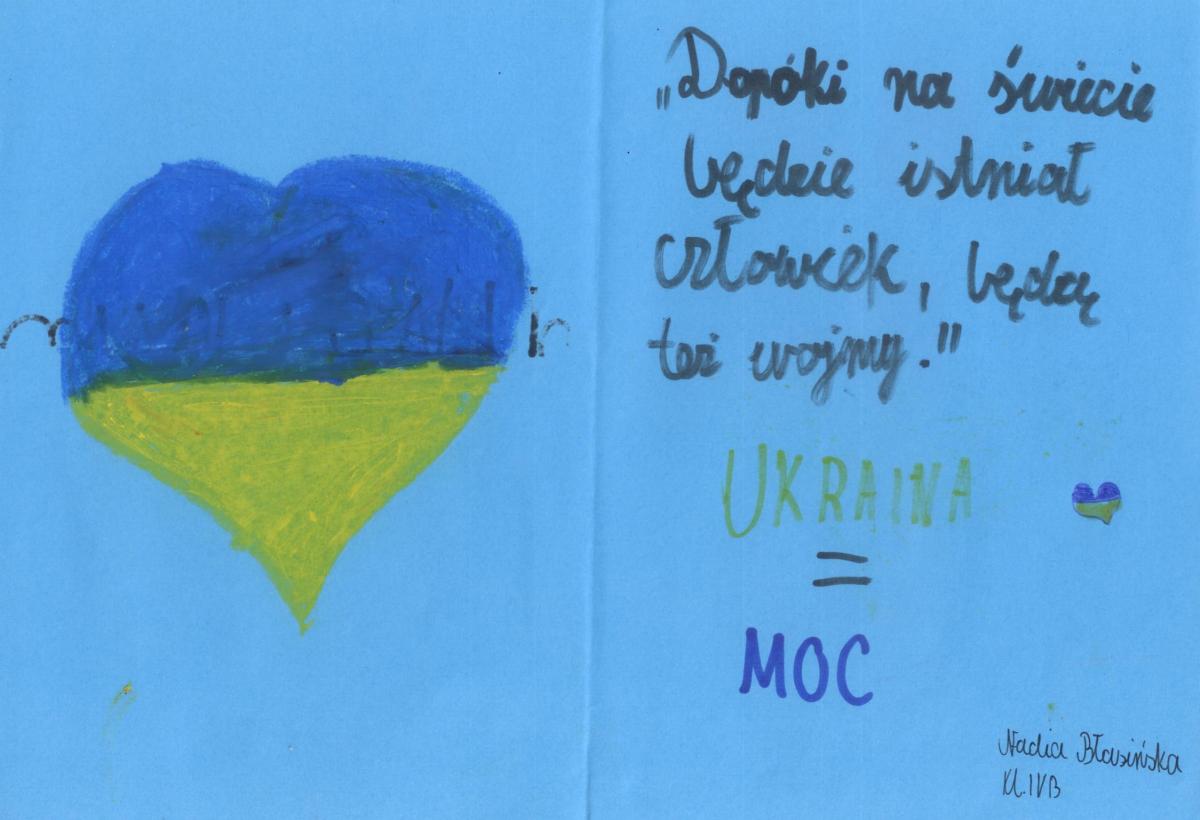 „Dopóki na świecie
będzie istniał
człowiek, będą
też wojny."
UKRAINA
=
MOC
Nadia Błasińska
Kl. IVB